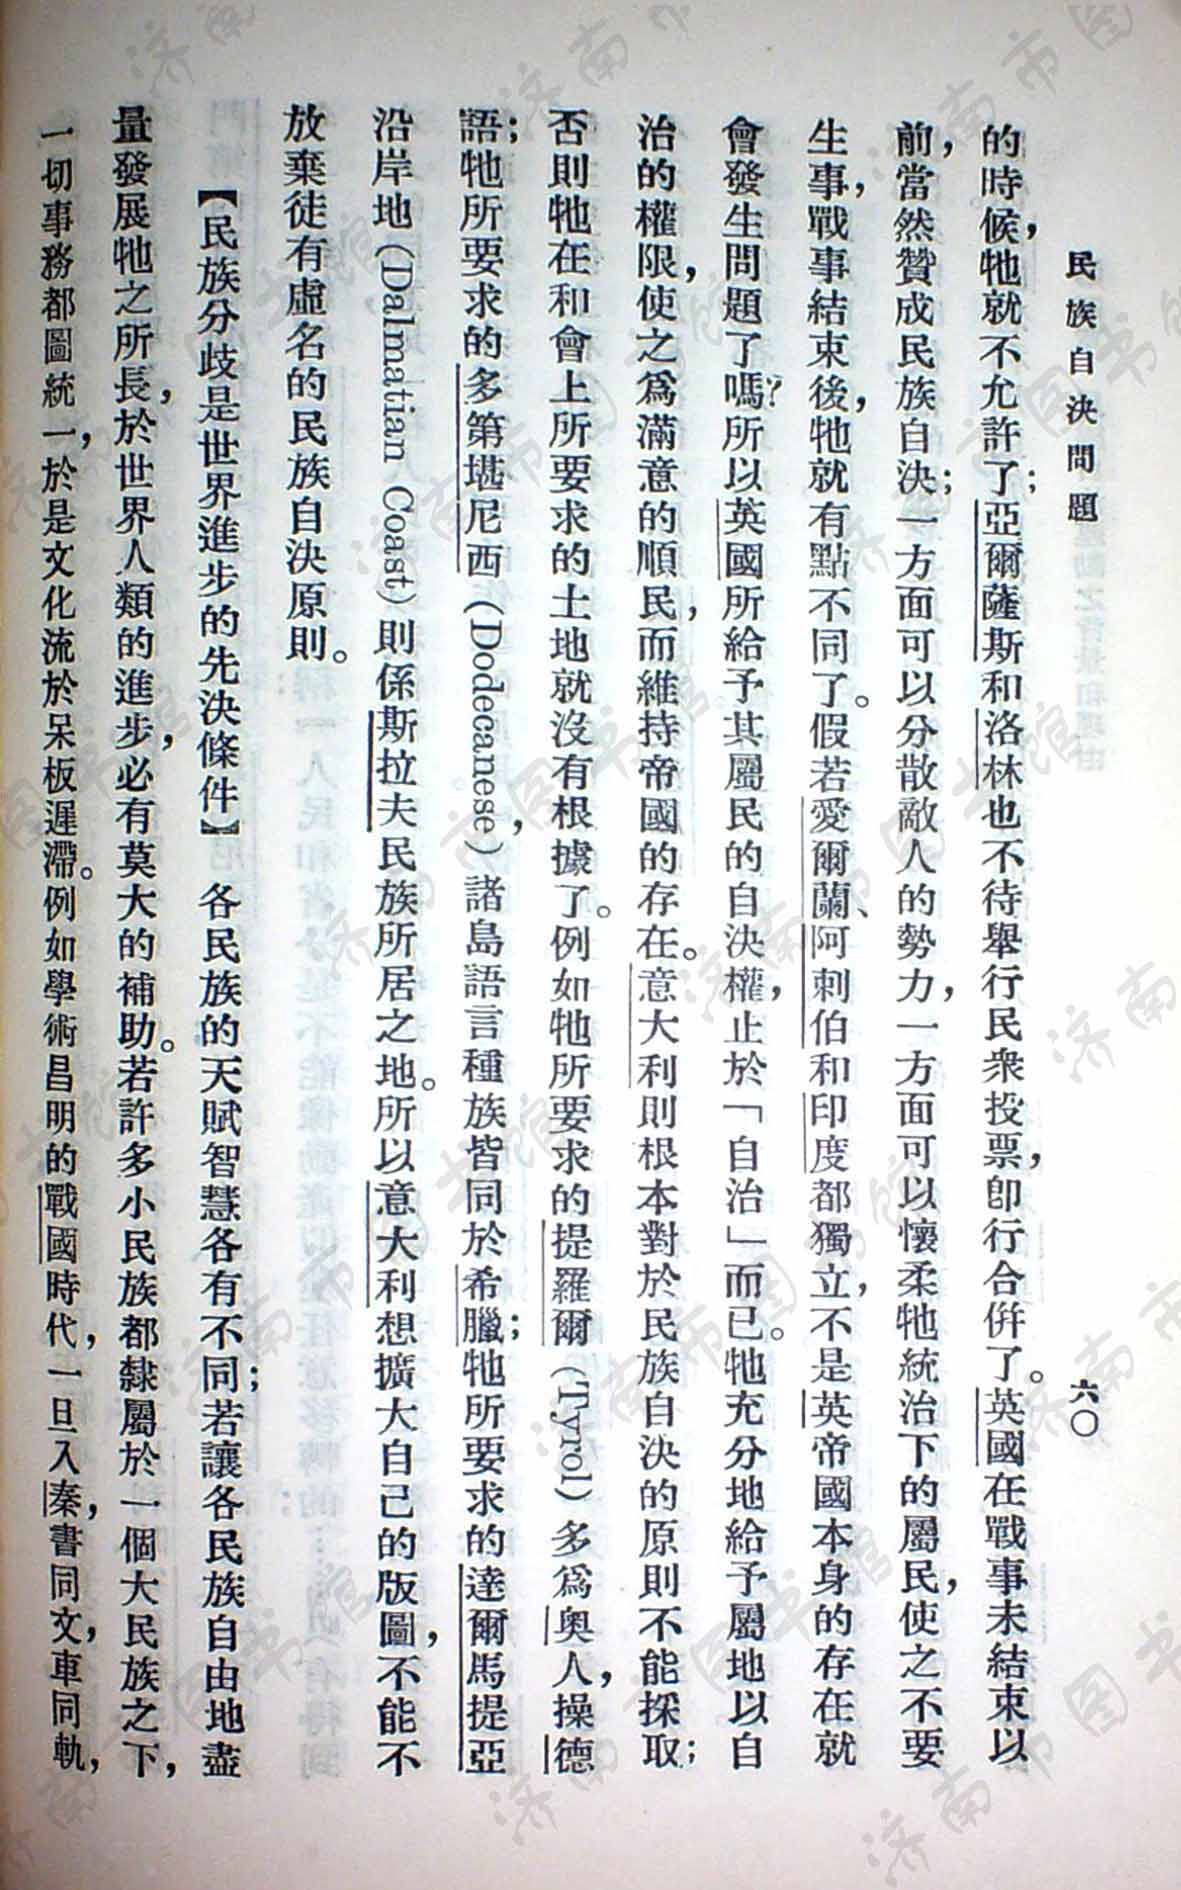 民族自決問題　六〇
的時候，牠就不允許了；亞爾薩斯和洛林也不待舉行民衆投票，卽行合併了。英國在戰事未結束以
前，當然贊成民族自決；一方面可以分散敵人的勢力，一方面可以懷柔牠統治下的屬民，使之不要
生事，戰事結束後，牠就有點不同了。假若愛爾蘭、阿剌伯和印度都獨立，不是英帝國本身的存在就
會發生問題了嗎？所以英國所給予其屬民的自決權，止於「自治」而已。牠充分地給予屬地以自
治的權限，使之爲滿意的順民，而維持帝國的存在。意大利則根本對於民族自決的原則不能採取；
否則牠在和會上所要求的土地就沒有根據了。例如牠所要求的提羅爾（Tyrol）多爲奧人，操德
語；牠所要求的多第堪尼西（Dodecanese）諸島，語言種族皆同於希臘；牠所要求的達爾馬提亞
沿岸地（Dalmatian Coast）則係斯拉夫民族所居之地。所以意大利想擴大自己的版圖，不能不
放棄徒有虛名的民族自決原則。
【民族分歧是世界進步的先決條件】　各民族的天賦智慧各有不同；若讓各民族自由地盡
量發展牠之所長，於世界人類的進步，必有莫大的補助。若許多小民族都隸屬於一個大民族之下，
一切事務都圖統一，於是文化流於呆板遲滯。例如學術昌明的戰國時代，一旦入秦，書同文，車同軌，
濟南市图书馆